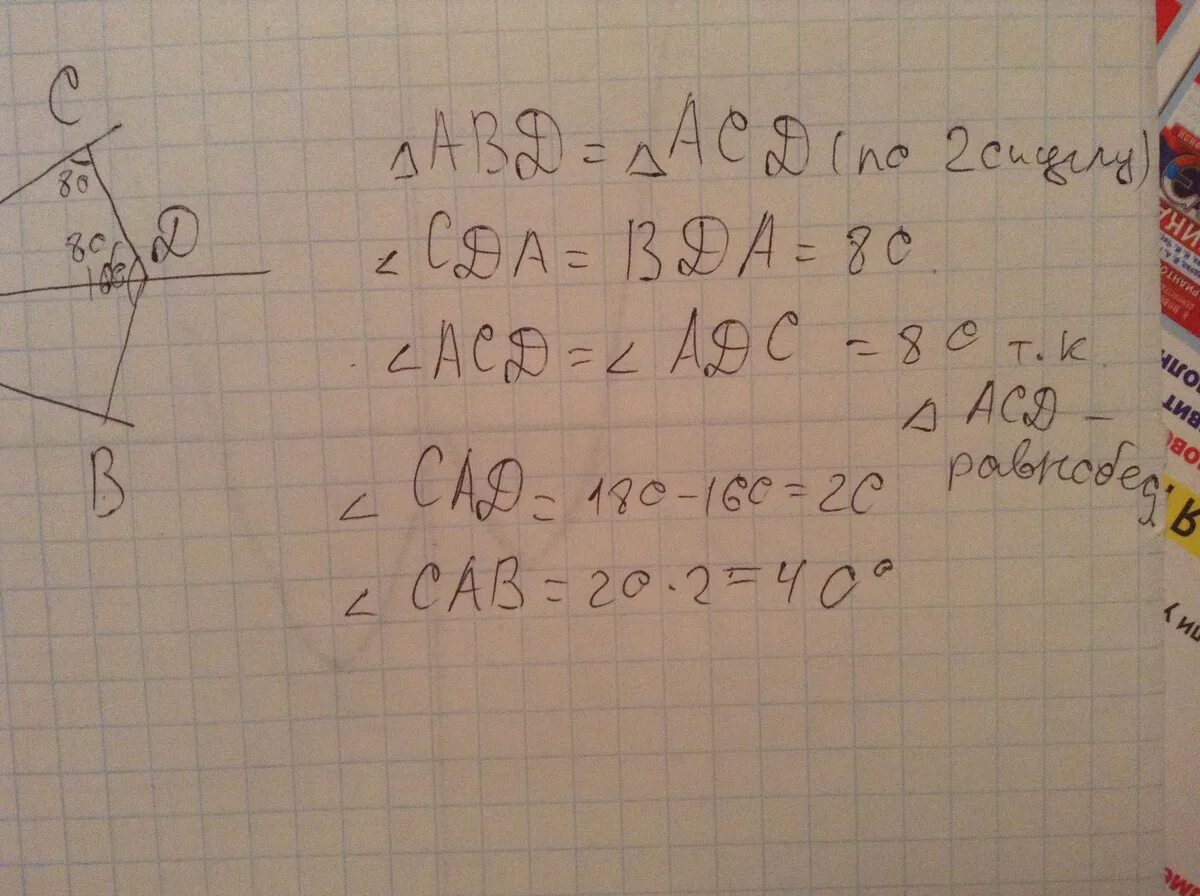 C
80
80
D
160
B
△ABD = △ACD (по 2 си углу)
∠CDA = BDA = 80
∠ACD = ∠ADC = 80 т.к
△ ACD –
равнобед.
∠ CAD = 180 – 160 = 20
∠ CAB = 20 · 2 = 40°